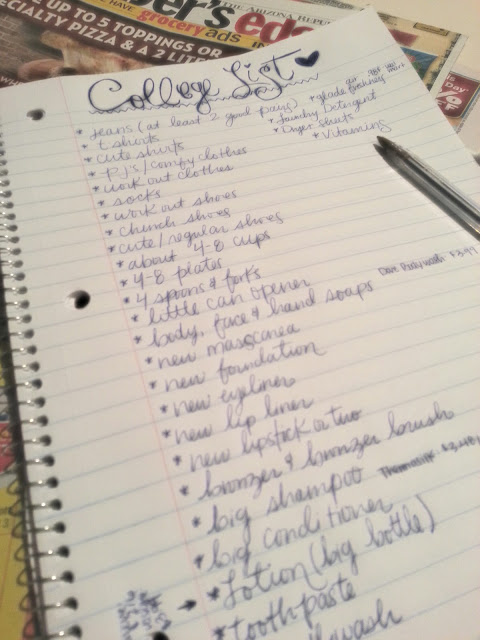 THE ARIZONA REPUBLIC
grocery ads
UP TO 5 TOPPINGS OR
SPECIALTY PIZZA & A 2 LITER
College List ♥
* Jeans (at least 2 good pairs)
* t shirts
* cute shirts
* P.J's/comfy clothes
* work out clothes
* socks
* work out shoes
* church shoes
* cute/regular shoes
* about 4-8 cups
* 4-8 plates
* 4 spoons & forks
* little can opener
* body, face & hand soaps
Dove Body wash $3.97
* new mascarea
* new foundation
* new eyeliner
* new lip liner
* new lipstick or two
* bronzer & bronzer brush
* big shampoo
* big conditioner
* Lotion (big bottle)
* toothpaste
* glade
* laundry Detergent
* Dryer sheets
* Vitamins